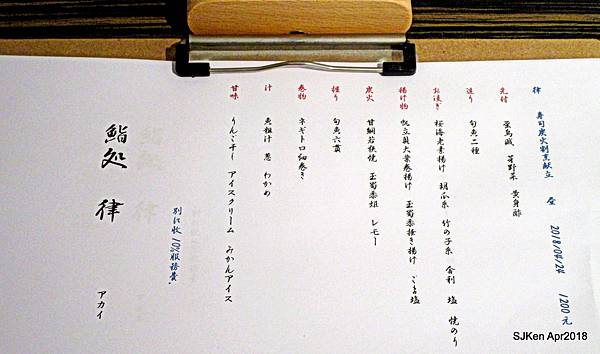 律 壽司炭火割烹献立 昼 2018/04/24 1200元
先付
蛍烏賊 芽野菜 黄身酢
造り
旬魚二種
お凌ぎ
桜海老素揚げ 胡瓜糸 竹の子糸 舎利 塩 焼のり
揚げ物
帆立貝大葉巻揚げ 玉蜀黍掻き揚げ ごま塩
炭火
甘鯛若狭焼 玉蜀黍祖 レモー
握り
旬魚六貫
巻物
ネギトロ細巻き
汁
魚粗汁 葱 わかめ
甘味
りんご干し アイスクリーム みかんアイス
別に收10%服務費.
鮨処 律
アカイ
SJKen Apr2018